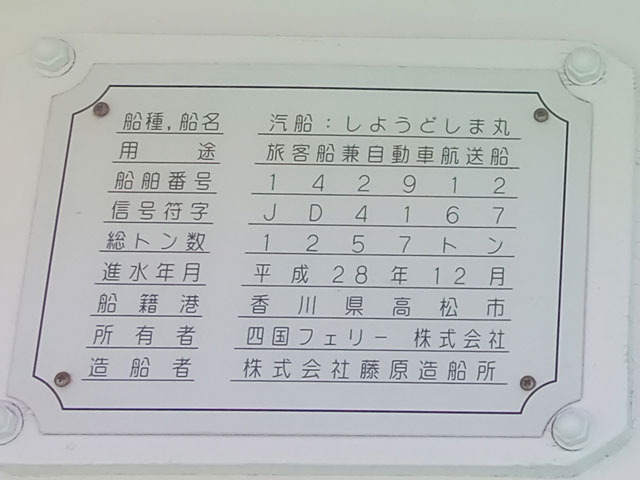 船種,船名 汽船:しようどしま丸
用途 旅客船兼自動車航送船
船舶番号 142912
信号符字 JD4167
総トン数 1257トン
進水年月 平成28年12月
船籍港 香川県高松市
所有者 四国フェリー 株式会社
造船者 株式会社藤原造船所